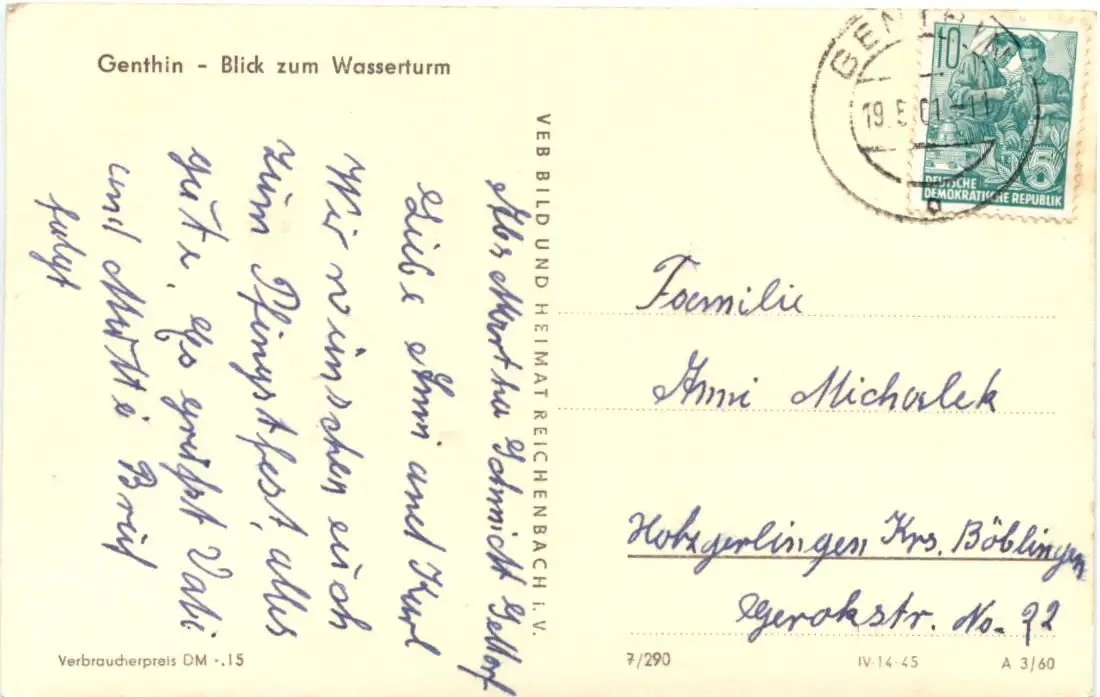 Genthin - Blick zum Wasserturm
GENTHIN
19.5.61-11
10
5
DEUTSCHE
DEMOKRATISCHE REPUBLIK
VEB BILD UND HEIMAT REICHENBACH i. V.
Abs Martha Schmidt
Liebe Anni und Kurl
Wir wünschen euch
zum Pfingstfest alles
gute, es grüßt Vati
und Mutti Brief
folgt
Familie
Anni Michalek
Holzgerlingen Krs. Böblingen
Gerokstr. No. 22
Verbraucherpreis DM -.15
7/290
IV-14-45
A 3/60